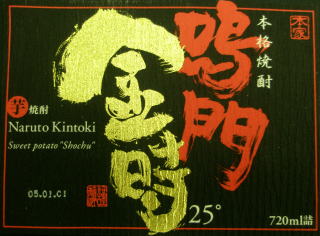 本家
本格焼酎
鳴門
金時
芋 焼酎
Naruto Kintoki
Sweet potato "Shochu"
05.01.01
25°
720ml詰